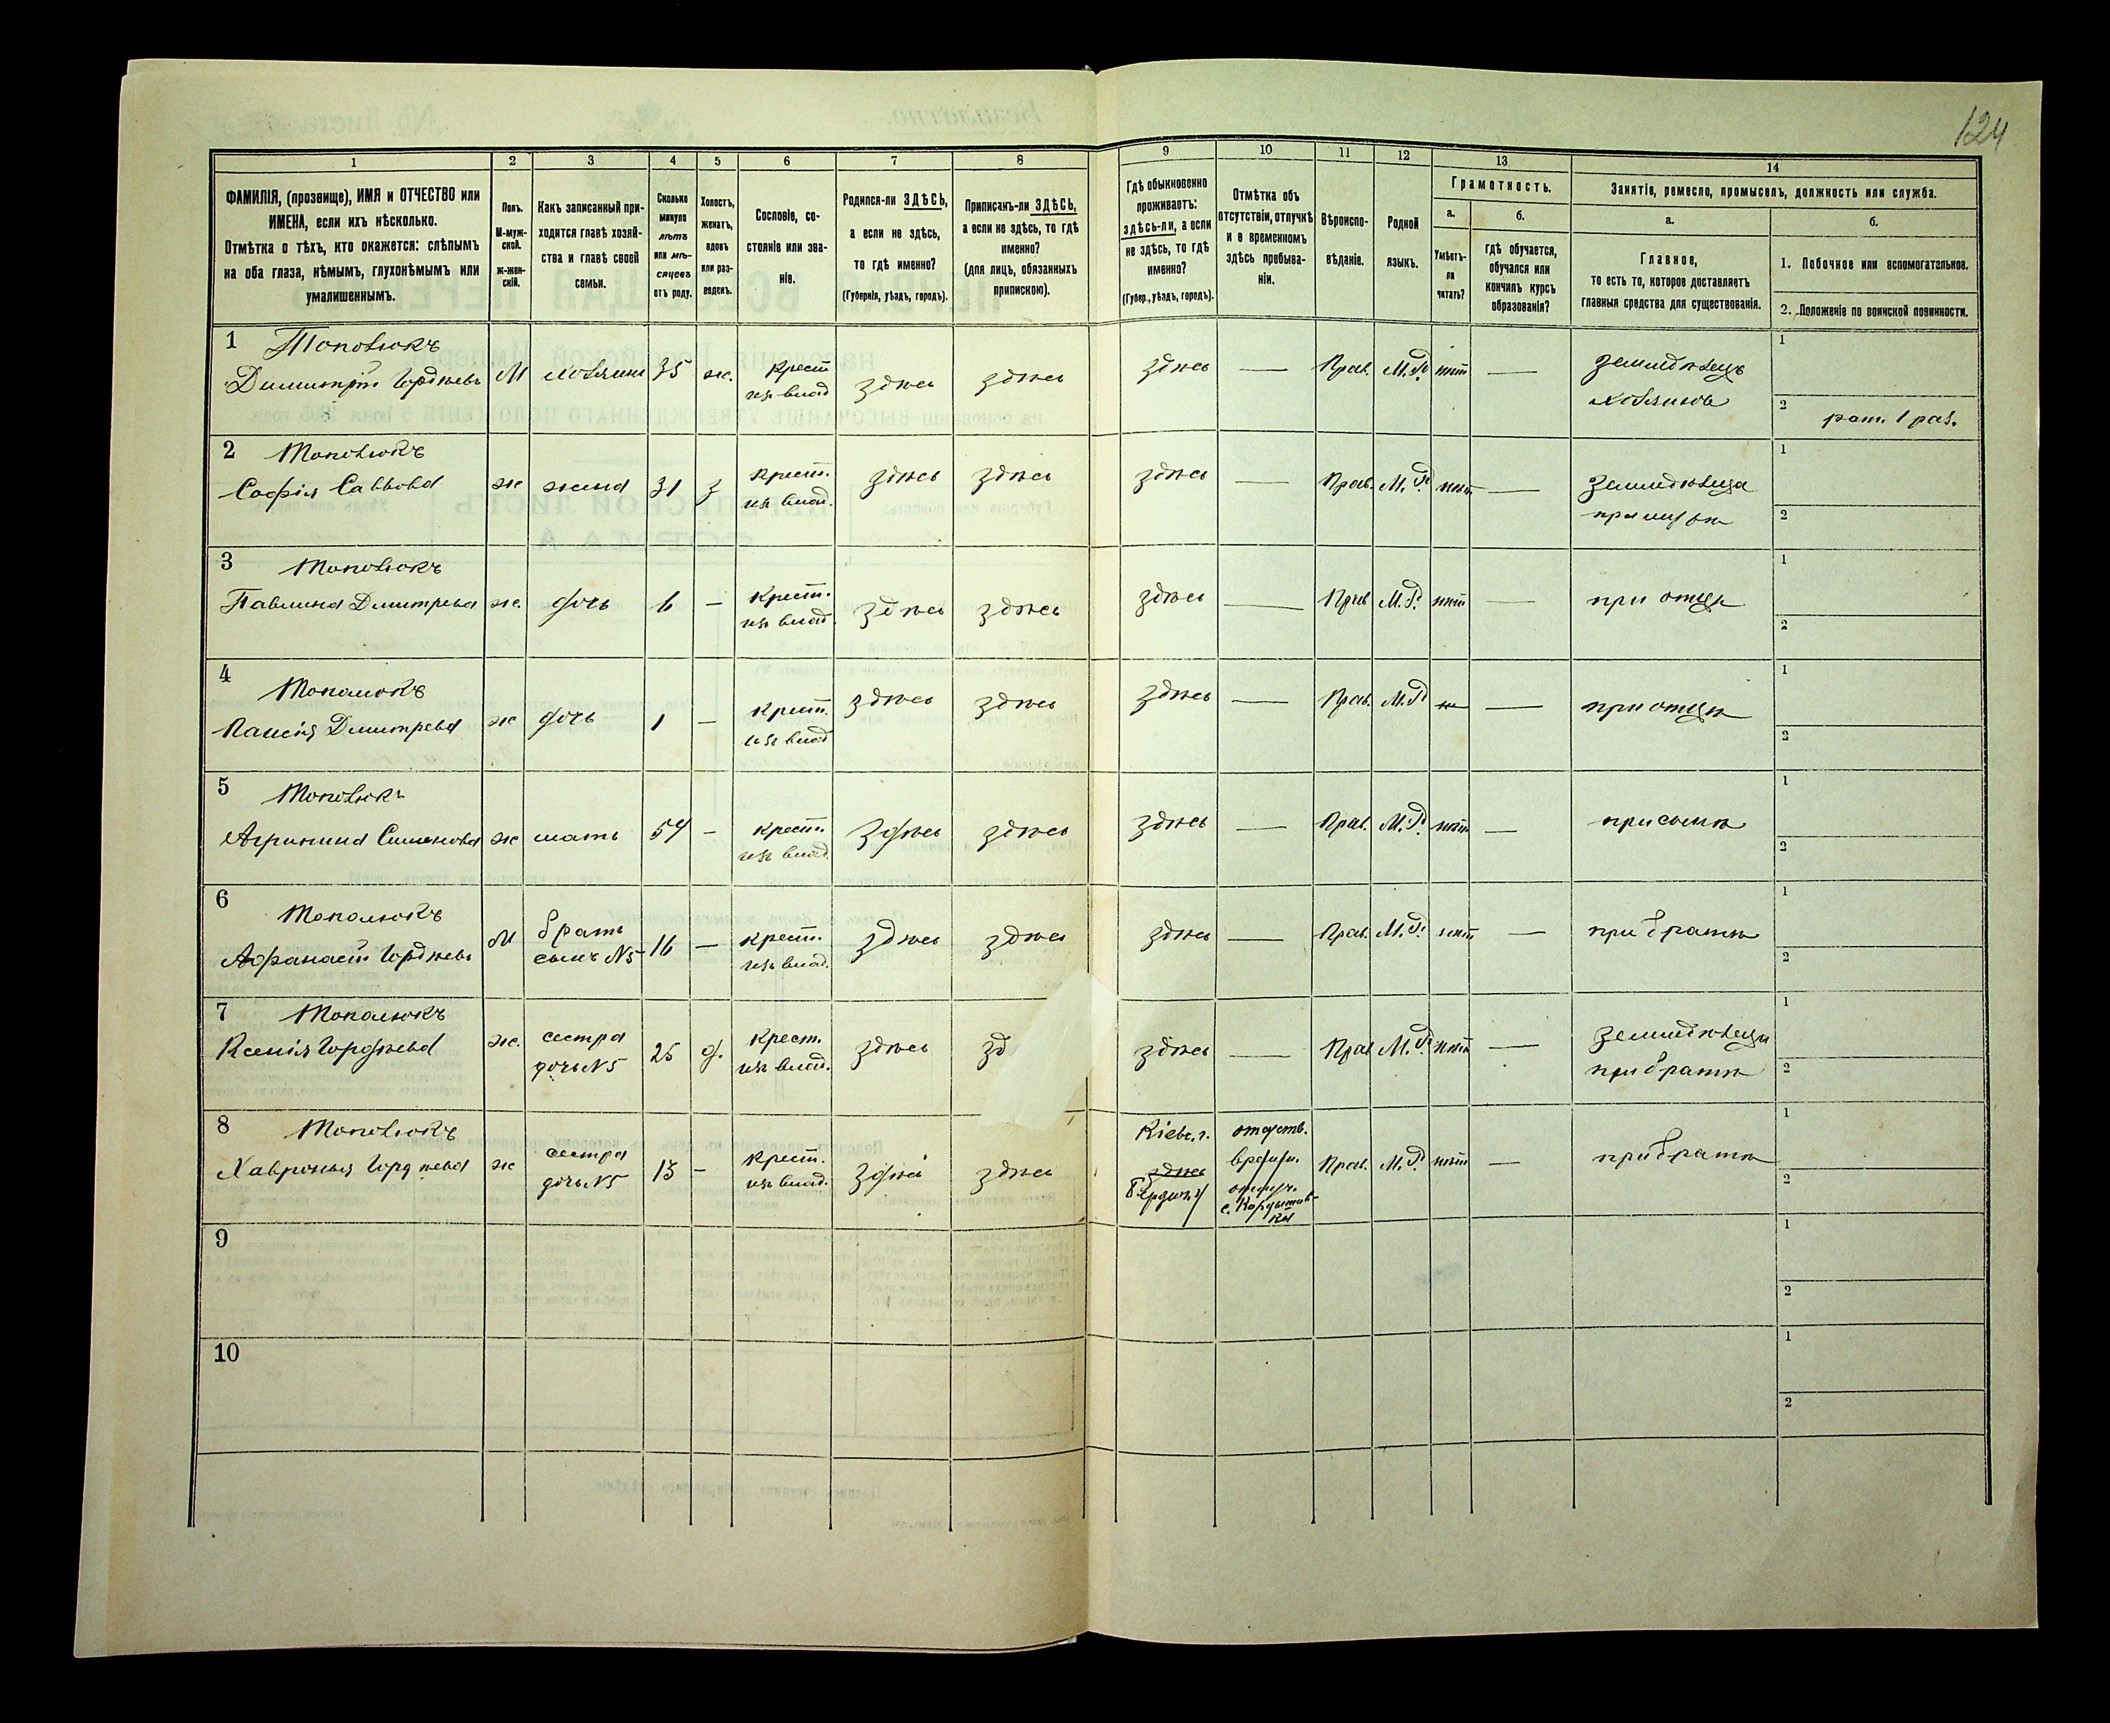 124
1 2 3 4 5 6 7 8 9 10 11 12 13 14
ФАМИЛІЯ, (прозвище), ИМЯ и ОТЧЕСТВО или
ИМЕНА, если ихъ нѣсколько.
Отмѣтка о тѣхъ, кто окажется: слѣпымъ
на оба глаза, нѣмымъ, глухонѣмымъ или
умалишеннымъ.
Полъ.
М-муж-
ской.
ж-жен-
скій.
Какъ записанный при-
ходится главѣ хозяй-
ства и главѣ своей
семьи.
Сколько
минуло
лѣтъ
или мѣ-
сяцевъ
отъ роду.
Холостъ,
женатъ,
вдовъ
или раз-
веденъ.
Сословіе, со-
стояніе или зва-
ніе.
Родился-ли ЗДѢСЬ,
а если не здѣсь,
то гдѣ именно?
(Губернія, уѣздъ, городъ).
Приписанъ-ли ЗДѢСЬ,
а если не здѣсь, то гдѣ
именно?
(для лицъ, обязанныхъ
припискою).
Гдѣ обыкновенно
проживаетъ:
здѣсь-ли, а если
не здѣсь, то гдѣ
именно?
(Губер., уѣздъ, городъ).
Отмѣтка объ
отсутствіи, отлучкѣ
и о временномъ
здѣсь пребыва-
ніи.
Вѣроиспо-
вѣданіе.
Родной
языкъ.
Грамотность.
а.
Умѣетъ-
ли
читать?
б.
Гдѣ обучается,
обучался или
кончилъ курсъ
образованія?
Занятіе, ремесло, промыселъ, должность или служба.
а.
Главное,
то есть то, которое доставляетъ
главныя средства для существованія.
б.
1. Побочное или вспомогательное.
2. Положеніе по воинской повинности.
1 Тополюкъ
Димитрій Гордѣевъ М хозяинъ 35 ж. крест. изъ влад. здѣсь здѣсь здѣсь — Прав. М.Р. нѣтъ — земледѣлецъ
хозяинъ
1
2 рат. 1 раз.
2 Тополюкъ
Софія Саввова ж жена 31 з крест. изъ влад. здѣсь здѣсь здѣсь — Прав. М.Р. нѣтъ — земледѣлица
при мужѣ
1
2
3 Тополюкъ
Павлина Дмитрева ж. дочь 6 — крест. изъ влад. здѣсь здѣсь здѣсь — Прав М.Р. нѣтъ — при отцѣ
1
2
4 Тополюкъ
Паисія Дмитрева ж дочь 1 — крест. изъ влад здѣсь здѣсь здѣсь — Прав. М.Р — при отцѣ
1
2
5 Тополюкъ
Агрипина Семенова ж мать 54 — крест. изъ влад. здѣсь здѣсь здѣсь — Прав. М.Р. нѣтъ — при сынѣ
1
2
6 Тополюкъ
Афанасій Гордѣевъ М братъ
сынъ N5 16 — крест. изъ влад. здѣсь здѣсь здѣсь — Прав. М.Р. нѣтъ — при братѣ
1
2
7 Тополюкъ
Ксенія Гордѣева ж. сестра
дочь N5 25 д. крест. изъ влад. здѣсь зд здѣсь — Прав М.Р. нѣтъ — земледѣлица
при братѣ
1
2
8 Тополюкъ
Хавронья Гордѣева ж сестра
дочь N5 13 — крест. изъ влад. здѣсь здѣсь Кіевс. г.
здѣсь
Бердич. у отсутств.
Прав. М.Р. нѣтъ — при братѣ
1
2
9
1
2
10
1
2